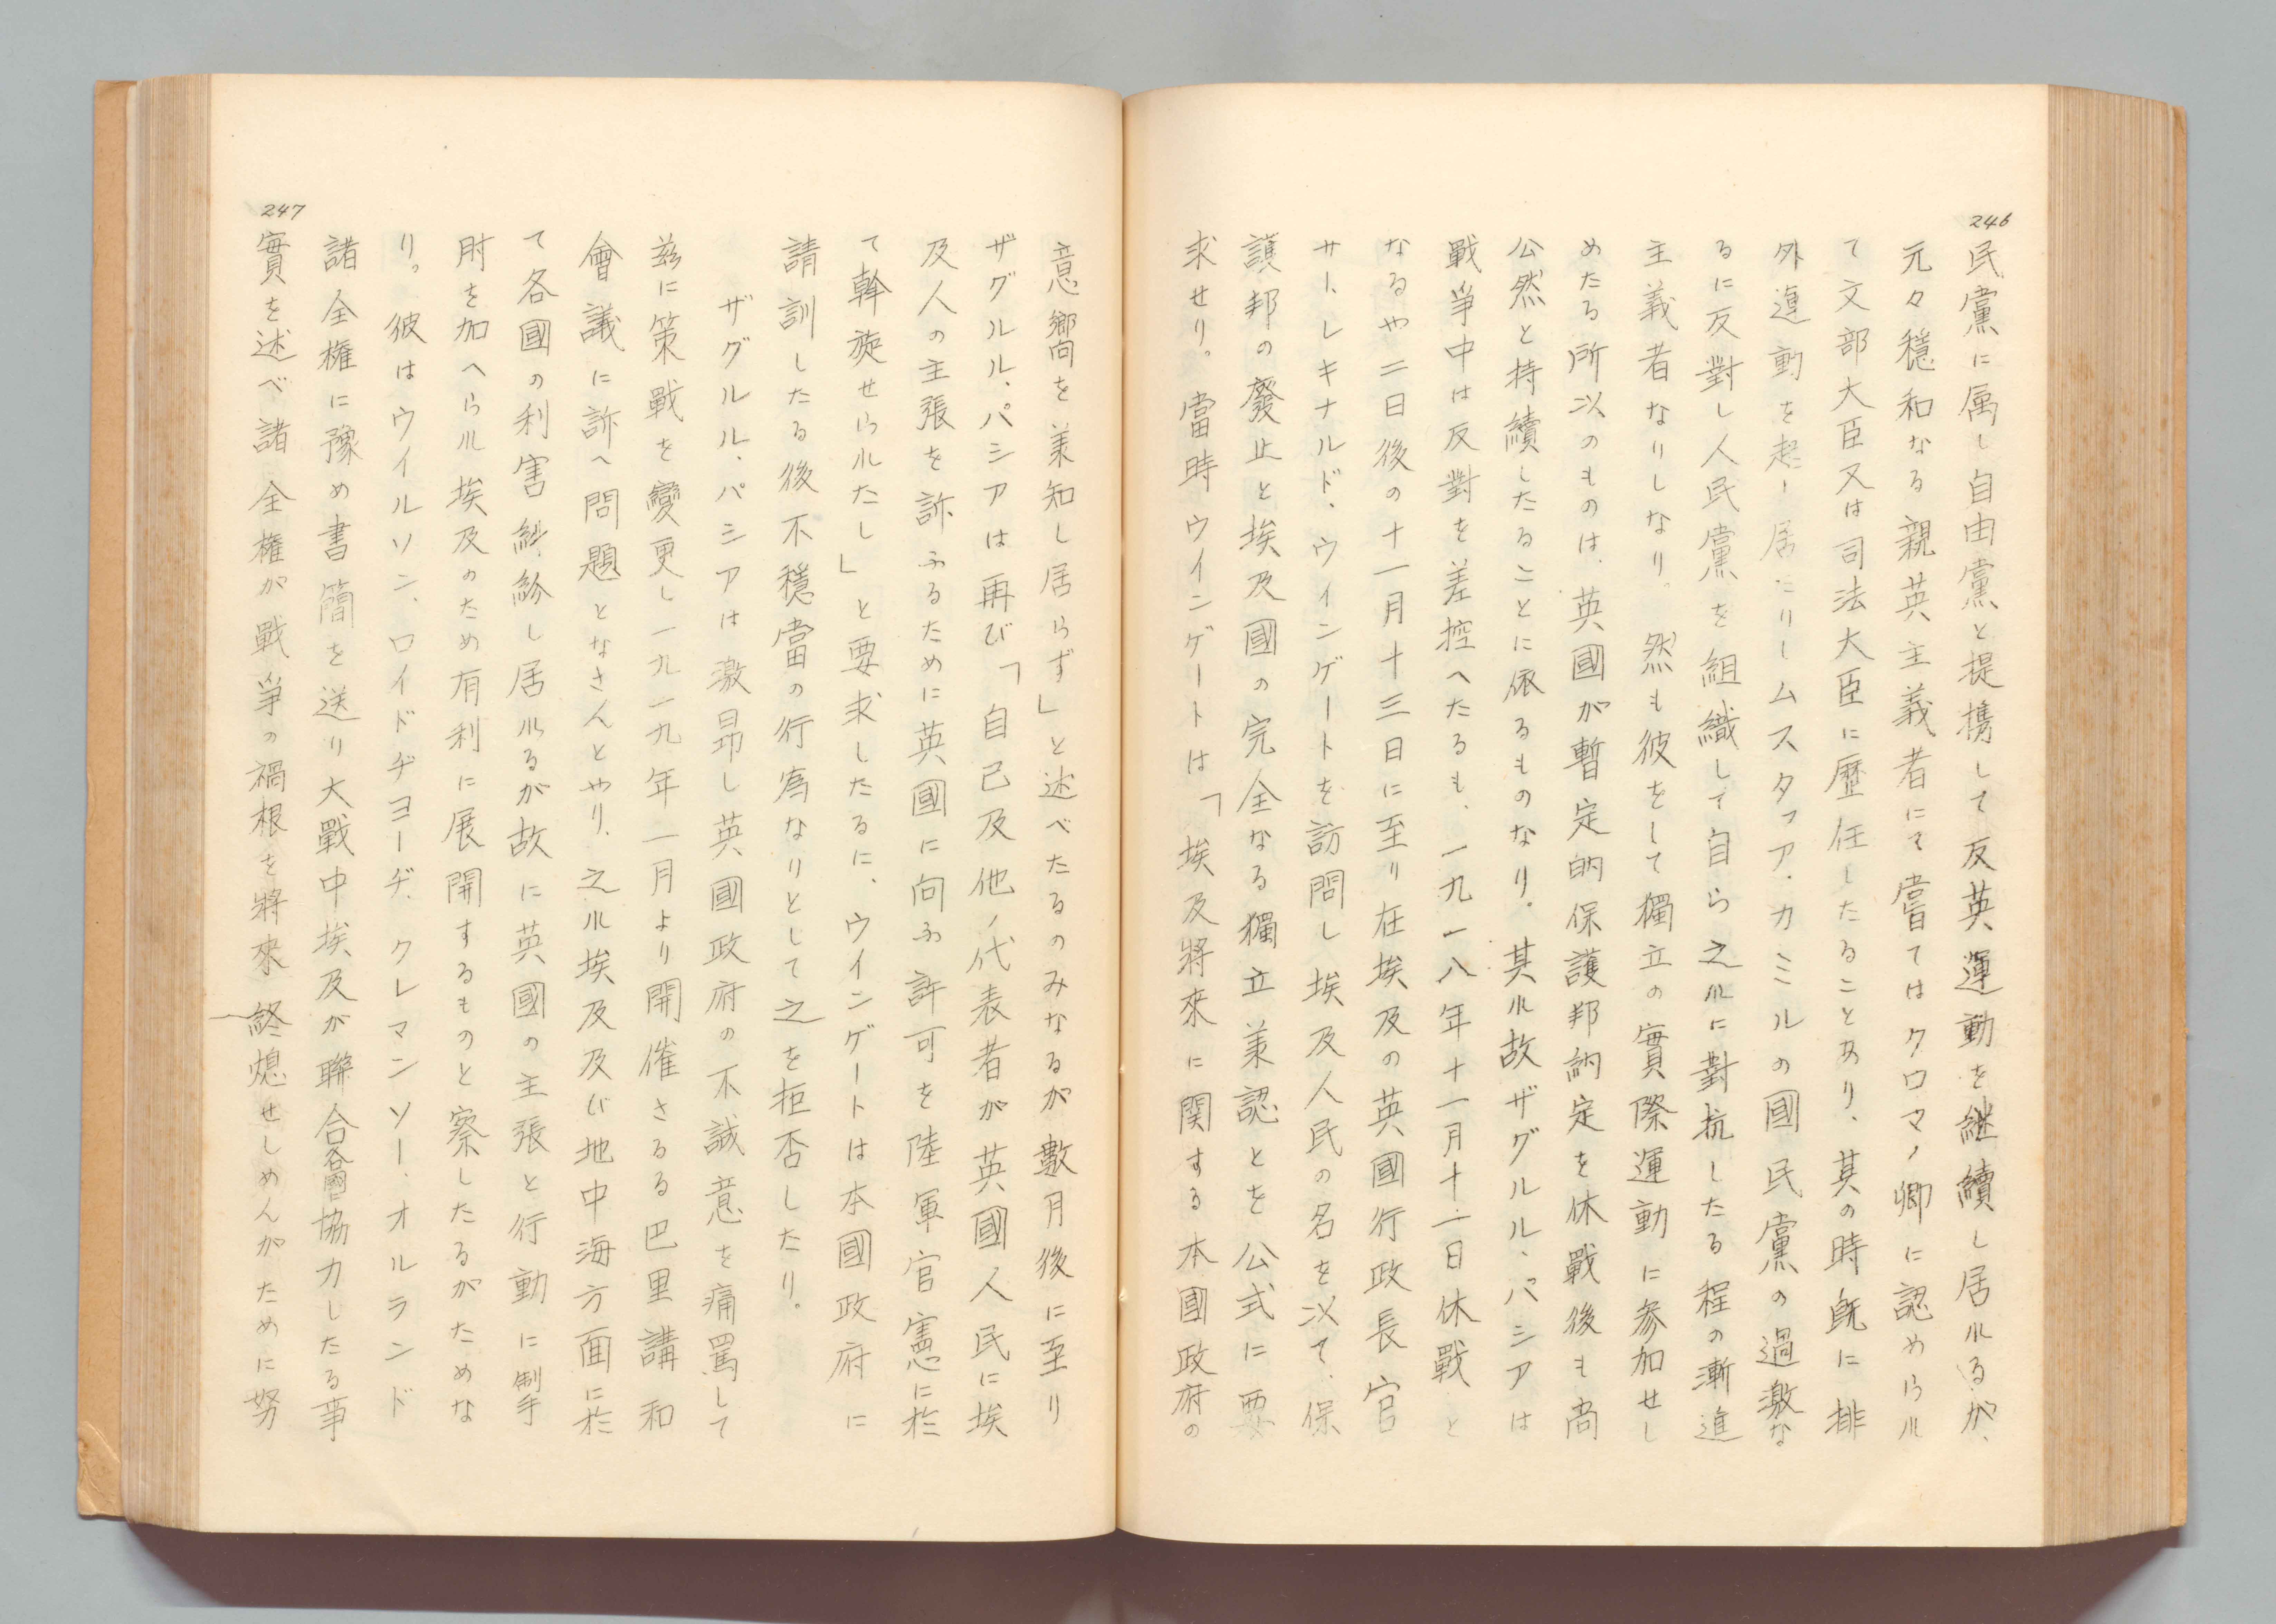 246
民黨に属し自由黨と提携して反英運動を継續し居れるが、
元々穏和なる親英主義者にて嘗てはクロマー卿に認められ
て文部大臣又は司法大臣に歴任したることあり、其の時既に排
外運動を起し居たりしムスタファ・カミルの國民黨の過激な
るに反對し人民黨を組織して自ら之れに對抗したる程の漸進
主義者なりしなり。然も彼をして獨立の實際運動に参加せし
めたる所以のものは、英國が暫定的保護邦納定を休戰後も尚
公然と持續したることに依るものなり。其れ故ザグルル、パシアは
戰爭中は反對を差控へたるも、一九一八年十一月十一日休戰と
なるや二日後の十一月十三日に至り在埃及の英國行政長官
サー、レキナルド、ウィンゲートを訪問し埃及人民の名を以て、保
護邦の廢止と埃及國の完全なる獨立兼認とを公式に要
求せり。當時ウインゲートは「埃及將來に関する本國政府の
247
意嚮を兼知し居らず」と述べたるのみなるが數月後に至り
ザグルル、パシアは再び「自己及他ノ代表者が英國人民に埃
及人の主張を訴ふるために英國に向ふ許可を陸軍官憲に於
て斡旋せられたし」と要求したるに、ウインゲートは本國政府に
請訓したる後不穏當の行為なりとして之を拒否したり。
ザグルル、パシアは激昂し英國政府の不誠意を痛罵して
茲に策戰を變更し一九一九年一月より開催さるる巴里講和
會議に訴へ問題となさんとやり、之れ埃及及び地中海方面に於
て各國の利害糾紛し居れるが故に英國の主張と行動に制
肘を加へられ埃及のため有利に展開するものと察したるがためな
り。彼はウイルソン、ロイドヂヨーヂ、クレマンソー、オルランド
諸全権に豫め書簡を送り大戰中埃及が聯合各國に協力したる事
實を述べ諸全権が戰爭の禍根を將來終熄せしめんがために努